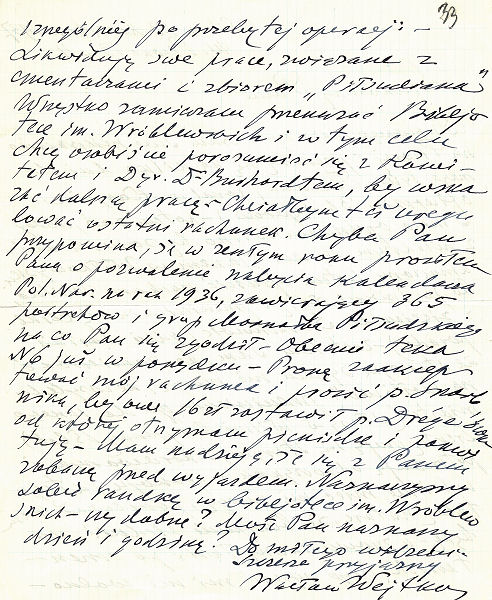 33
szczególniej po przebytej operacji: –
Likwiduję swe prace, związane z
cmentarzami i zbiorem „Piłsudiana"
Wszystko zamierzam przekazać Biblio
tece im. Wróblewskich i w tym celu
chcę osobiście porozumieć się z Komi-
tetem i Dyr. Dr Burhardtem, by wska
zać dalszą pracę – Chciałbym też uregu
lować ostatni rachunek. Chyba Pan
przypomina, że w zeszłym roku prosiłem
Pana o pozwolenie nabycia Kalendarza
Pol. Nar. na rok 1936, zawierający 365
portretów i grup Marszałka Piłsudskiego
na co Pan się zgodził – Obecnie teka
No już w porządku – Proszę zaakcep
tować mój rachunek i prosić p. Skarb
nika, by owe 16 zł zostawił p.
od której otrzymam piśmiennie i pokwi
tuję – Mam nadzieję, że się z Panem
zobaczę przed wyjazdem. Naznaczymy
sobie randkę w bibljotece im. Wróblew
skich – wygodne? Może Pan naznaczy
dzień i godzinę? Do miłego widzenia –
Szczerze przyjazny
Wacław Wejtko